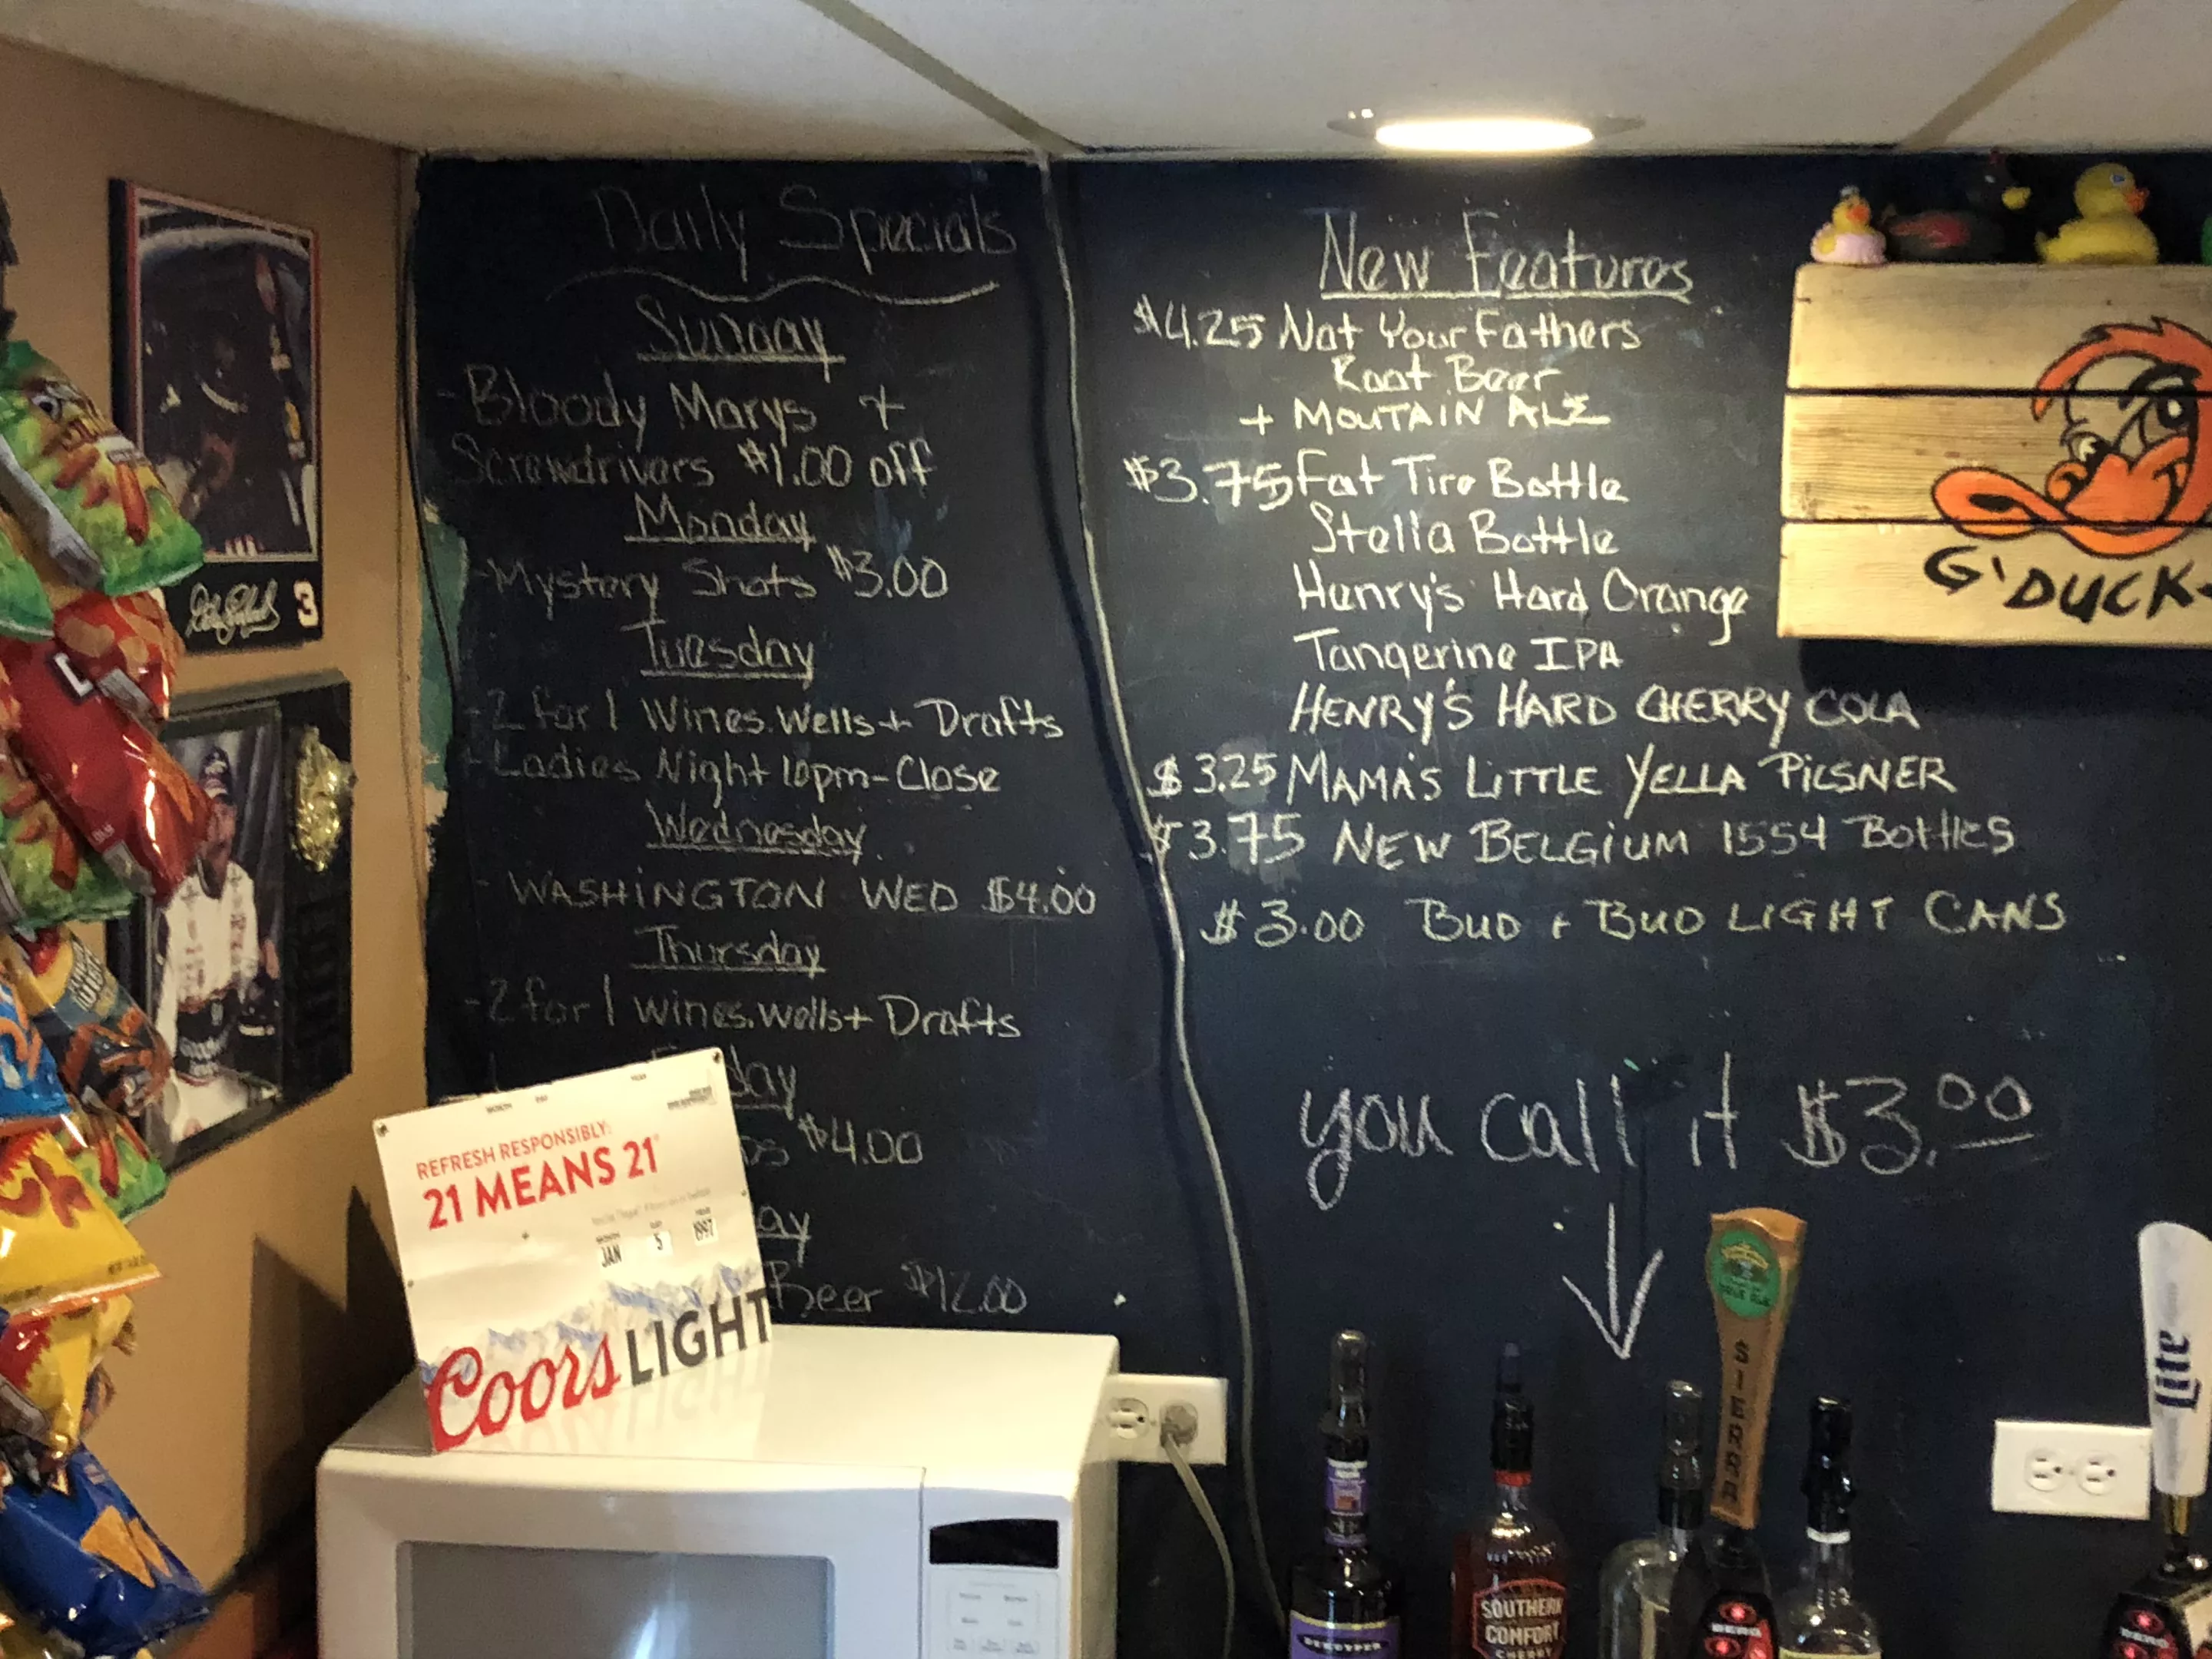 Daily Specials
Sunday
- Bloody Marys +
Screwdrivers $1.00 off
Monday
-Mystery Shots $3.00
Tuesday
-2 for 1 Wines.Wells + Drafts
-Ladies Night 10pm-Close
Wednesday
- WASHINGTON WED $4.00
Thursday
-2 for 1 wines.wells + Drafts
day
$4.00
ay
Beer $12.00
New Features
$4.25 Not Your Fathers
Root Beer
+ MOUTAIN ALE
$3.75 Fat Tire Bottle
Stella Bottle
Henry's Hard Orange
Tangerine IPA
HENRY'S HARD CHERRY COLA
$3.25 MAMA'S LITTLE YELLA PILSNER
$3.75 NEW BELGIUM 1554 Bottles
$3.00 BUD + BUD LIGHT CANS
you call it $3.00
G'DUCK-
3
REFRESH RESPONSIBLY:
21 MEANS 21
MONTH DAY YEAR
JAN 5 1997
Coors LIGHT
SIERRA
Lite
DEKUYPER
SOUTHERN
COMFORT
CHERRY